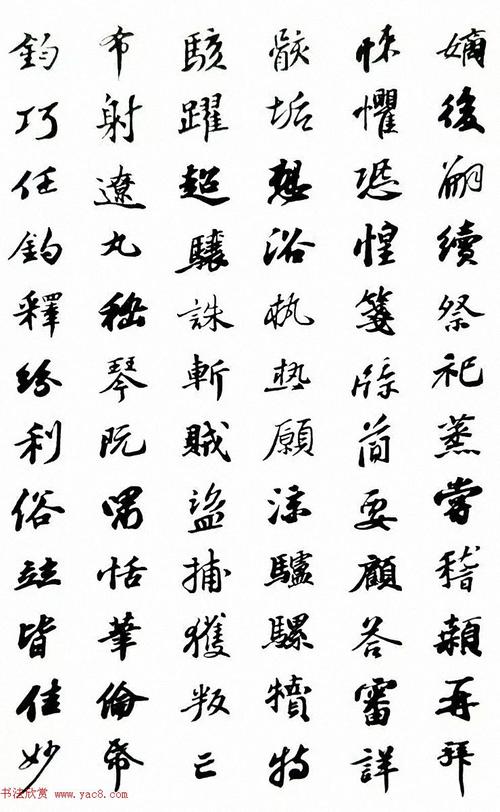 嫡後嗣續祭祀蒸嘗稽顙再拜
悚懼恐惶箋牒簡要顧答審詳
骸垢想浴執熱願涼驢騾犢特
駭躍超驤誅斬賊盜捕獲叛亡
布射遼丸嵇琴阮嘯恬筆倫帋
鈞巧任釣釋紛利俗竝皆佳妙
书法欣赏 www.yac8.com